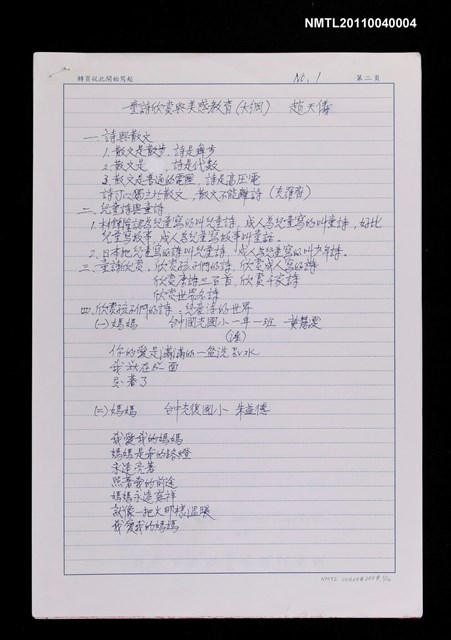 NMTL20110040004
轉頁從此開始寫起 No. 1 第二頁
童詩欣賞與美感教育(大綱) 趙天儀
一. 詩與散文
1. 散文是散步, 詩是舞步
2. 散文是 詩是代數
3. 散文是普通的電壓, 詩是高壓電
詩可以獨立於散文, 散文不能離詩
二. 兒童詩與童詩
1. 林鍾隆認為兒童寫的叫兒童詩, 成人為兒童寫的叫童詩, 好比
兒童寫故事, 成人為兒童寫故事叫童話.
2. 日本把兒童寫的詩叫兒童詩, 成人為兒童寫的叫少年詩.
三. 童詩欣賞. 欣賞孩子們的詩, 欣賞成人寫的詩
欣賞唐詩三百首, 欣賞千家詩
欣賞世界名詩
四. 欣賞孩子們的詩: 兒童詩的世界
(一) 媽媽 台中光復國小一年一班
你的愛是滿滿的一盆洗澡水
我放在裡面
(二) 媽媽 台中光復國小
我愛我的媽媽
媽媽是我的路燈
永遠亮著
照著我的前途
媽媽永遠慈祥
就像一把火那樣溫暖
我愛我的媽媽